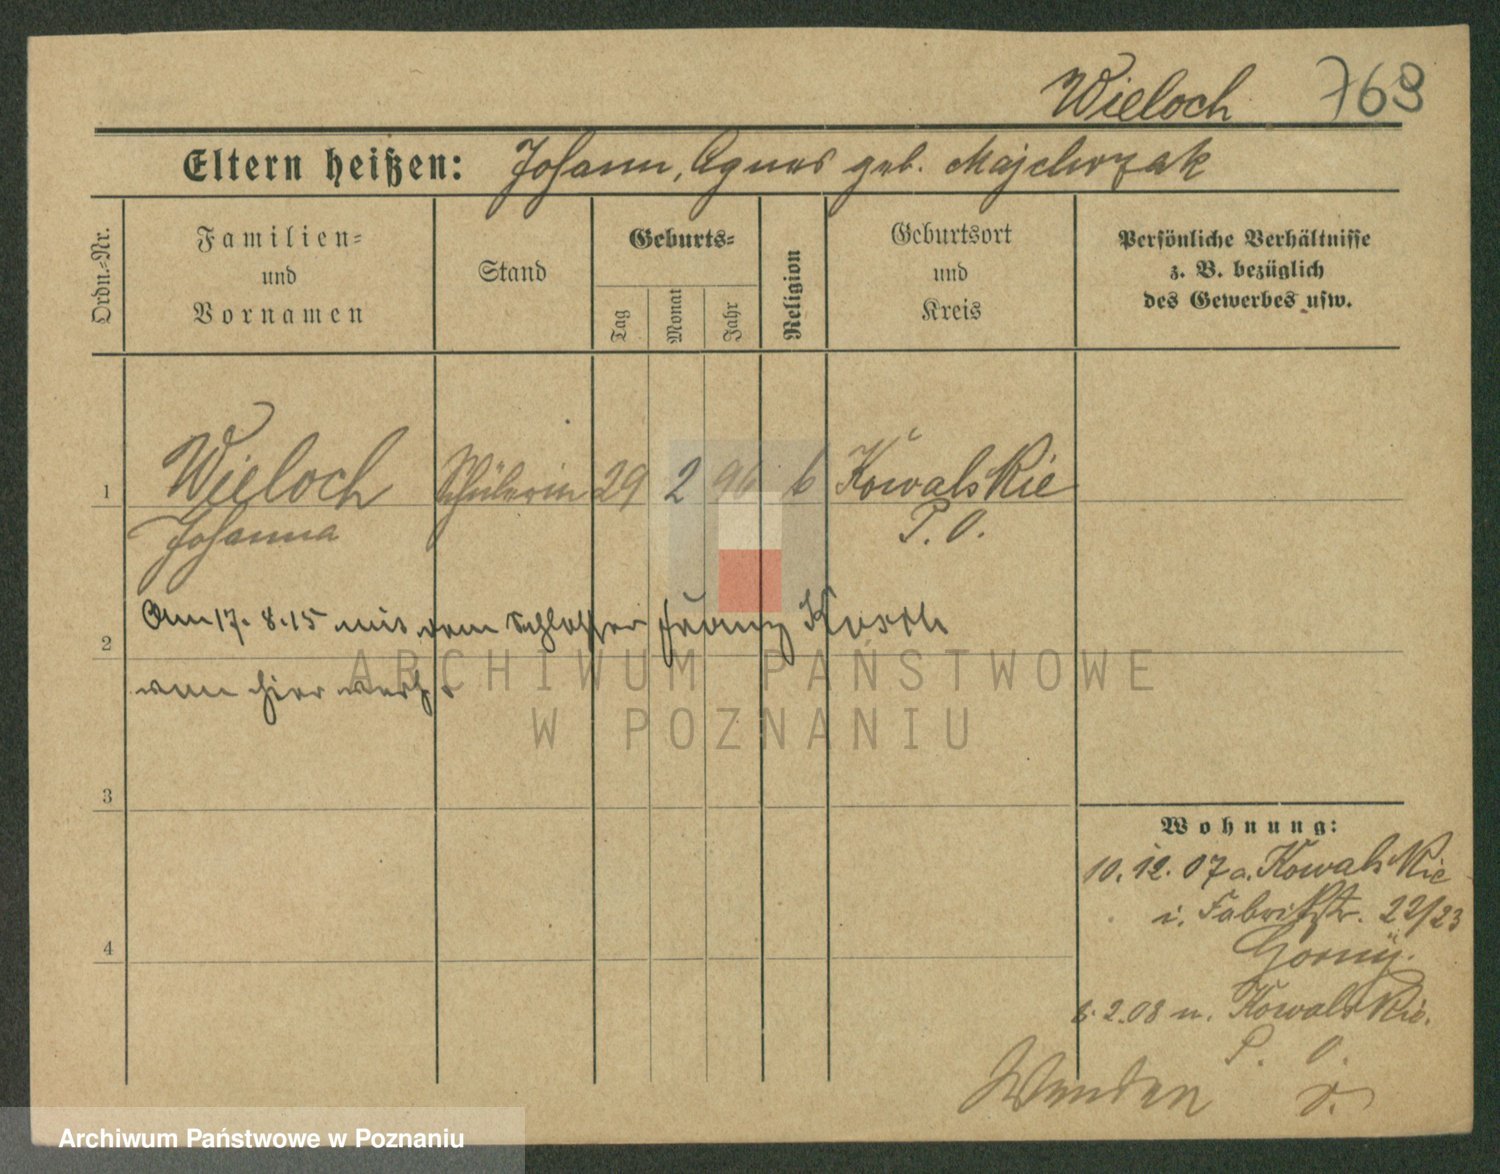 Wieloch 769
Eltern heißen: Johann, Agnes geb. Majchrzak
Ordn.-Nr.
Familien-
und
Vornamen
Stand
Geburts-
Tag
Monat
Jahr
Religion
Geburtsort
und
Kreis
Persönliche Verhältnisse
z. B. bezüglich
des Gewerbes usw.
1 Wieloch Schülerin 29 2 96 k Kowalskie
Johanna P. O.
Am 17. 8. 15 mit dem Schlosser Franz
2
von hier verh.
ARCHIWUM PAŃSTWOWE
W POZNANIU
3
Wohnung:
10. 12. 07 a. Kowalskie
i. Fabrikstr. 22/23
Gorny.
2. 08 n. Kowalskie.
P. O.
4
Wenden
Archiwum Państwowe w Poznaniu